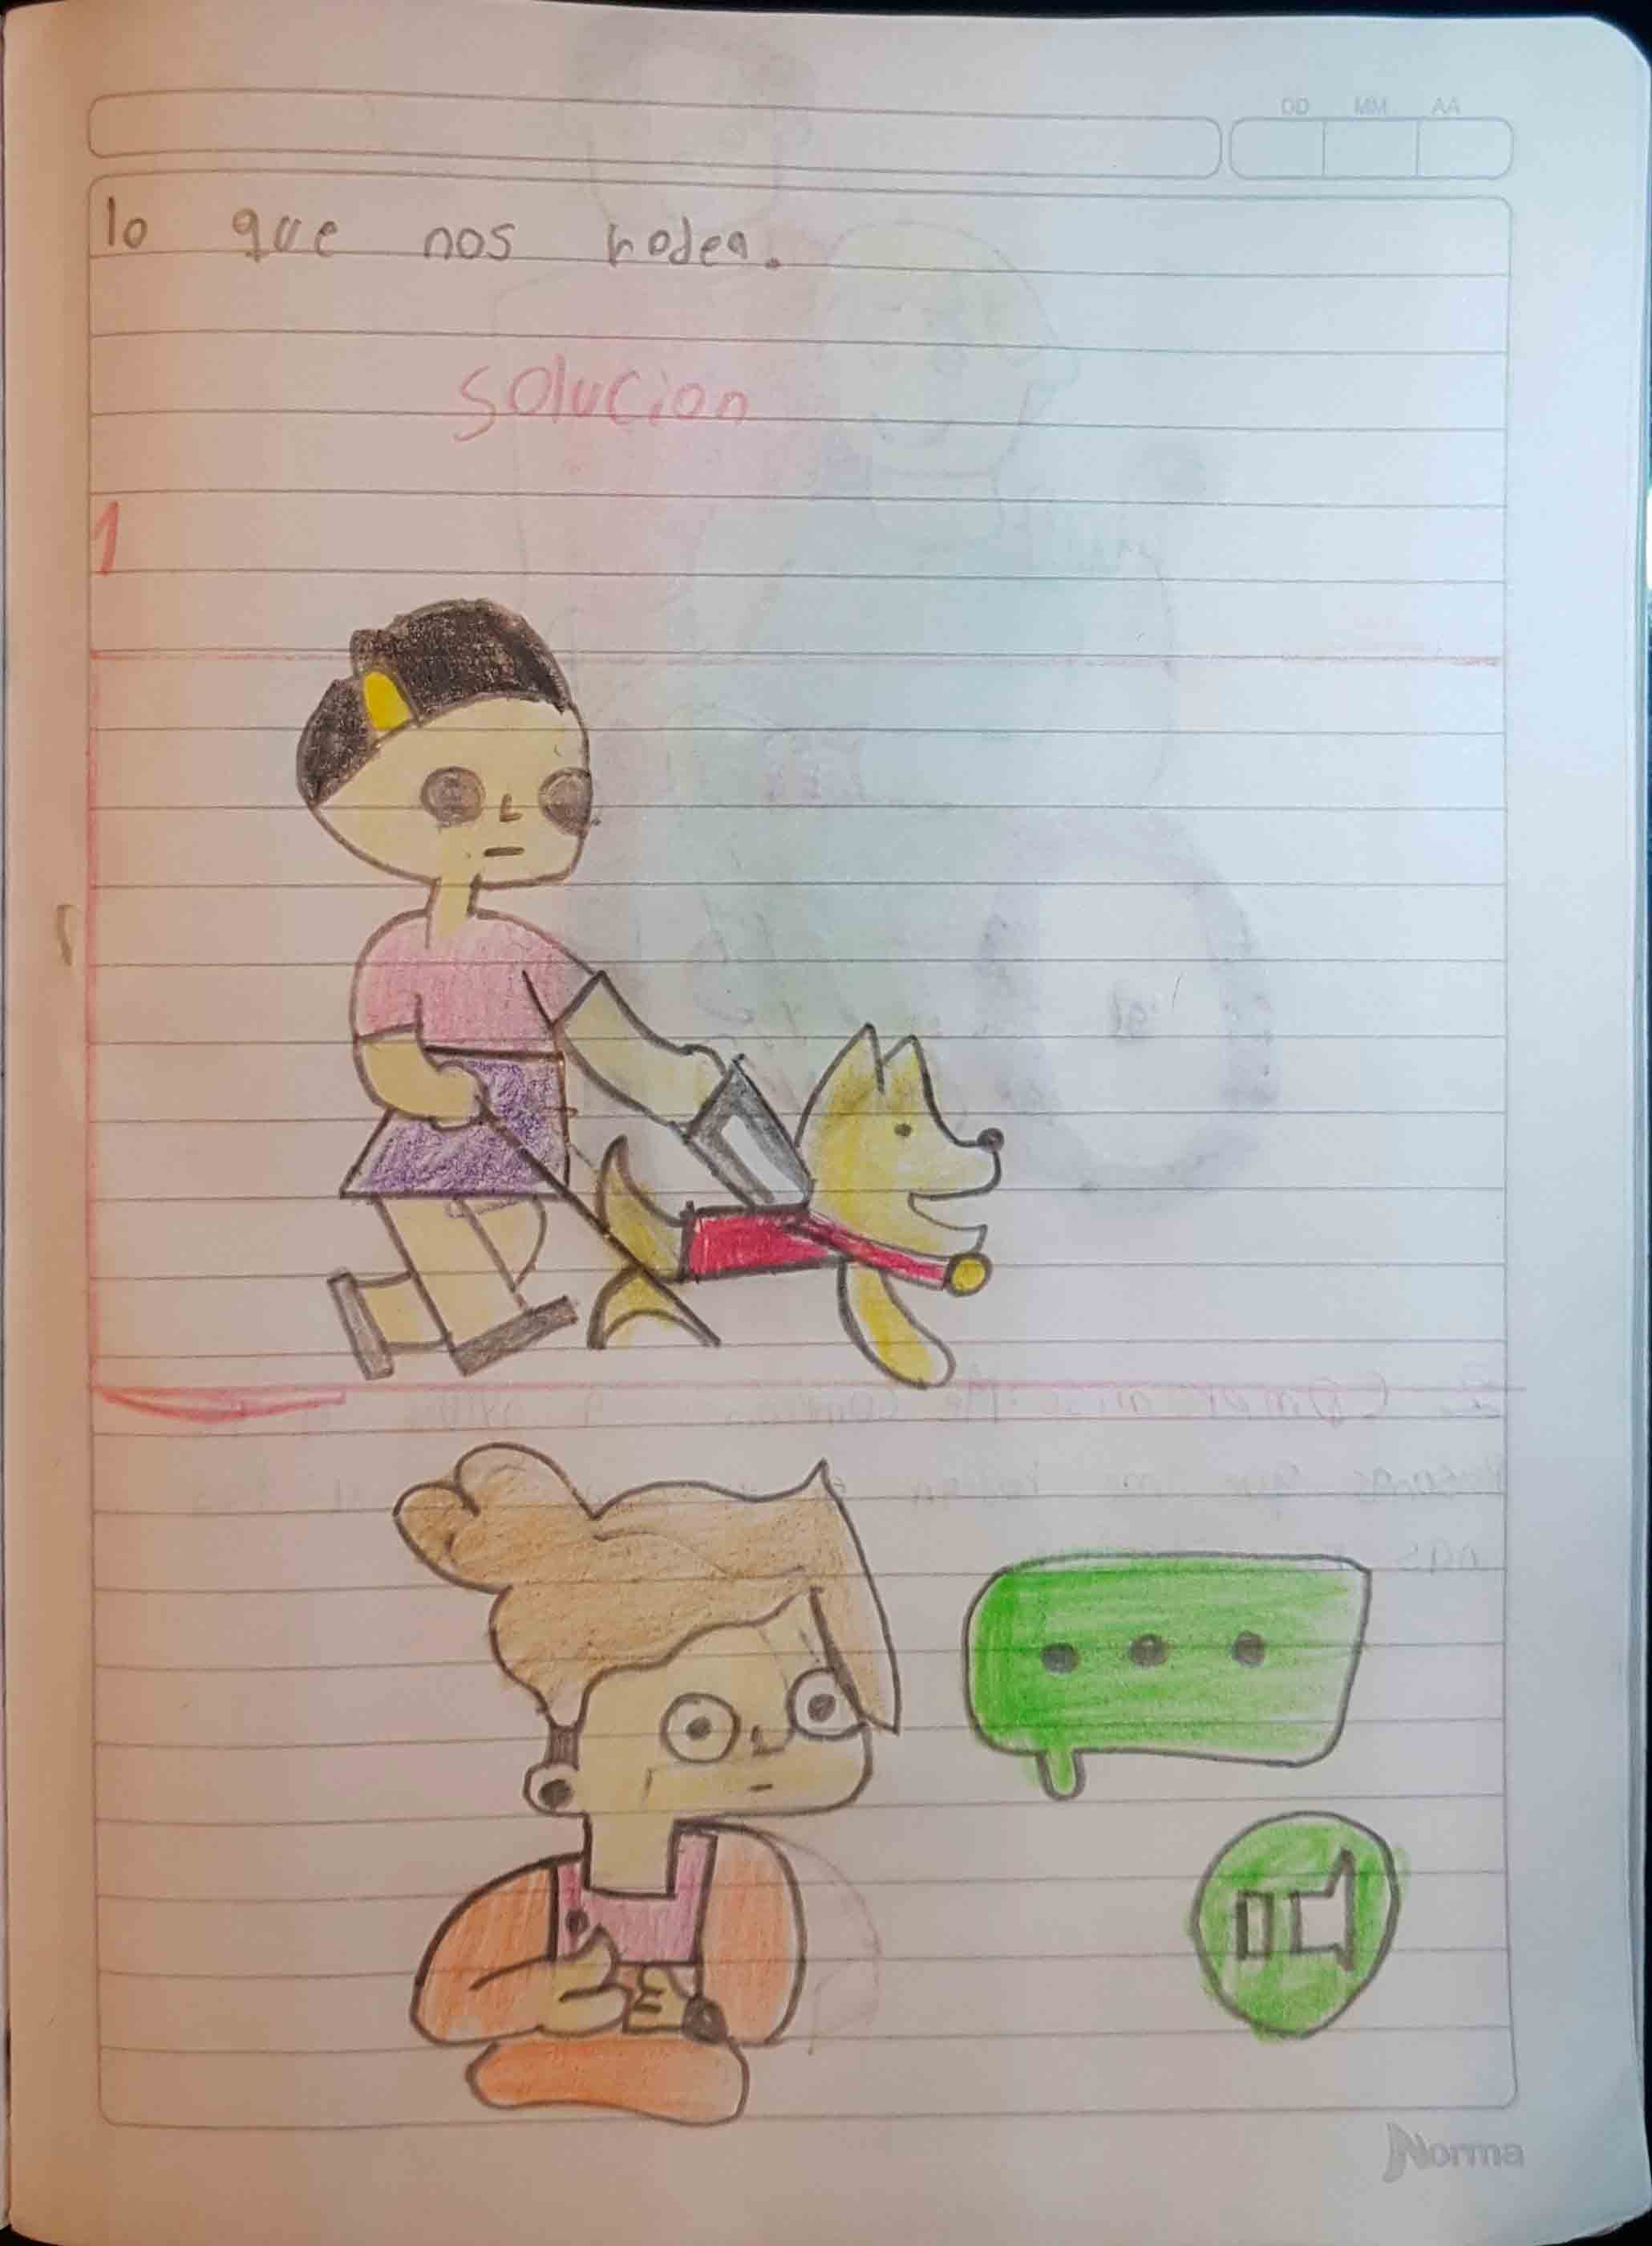 DD MM AA
lo que nos rodea.
solucion
1
Norma